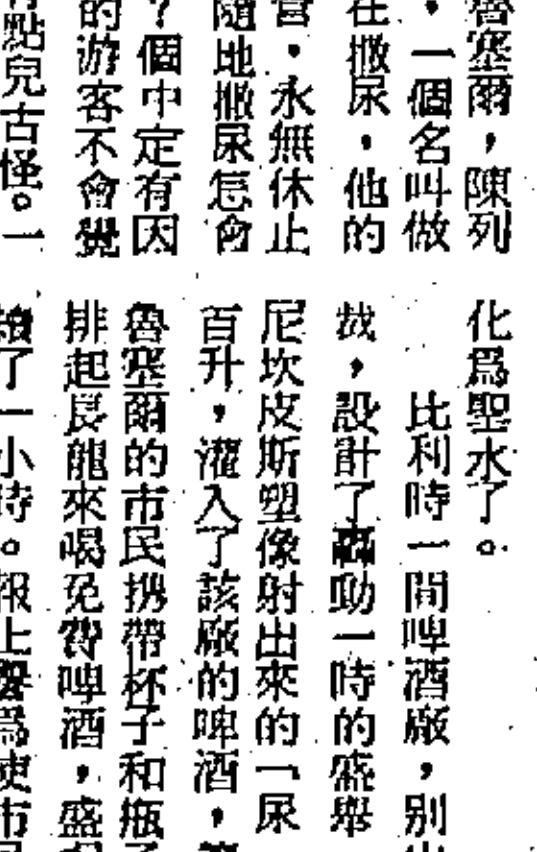 魯塞爾，陳列
，一個名叫做
在撒尿，他的
當，永無休止
隨地撒尿怎會
？個中定有因
的游客不會覺
有點兒古怪。一
化爲聖水了。
比利時一間啤酒廠，別出
裁，設計了轟動一時的盛舉
尼坎皮斯塑像射出來的「尿
百升，灌入了該廠的啤酒，
魯塞爾的市民携帶杯子和瓶子
排起長龍來喝免費啤酒，盛
了一小時。報上譽爲使市